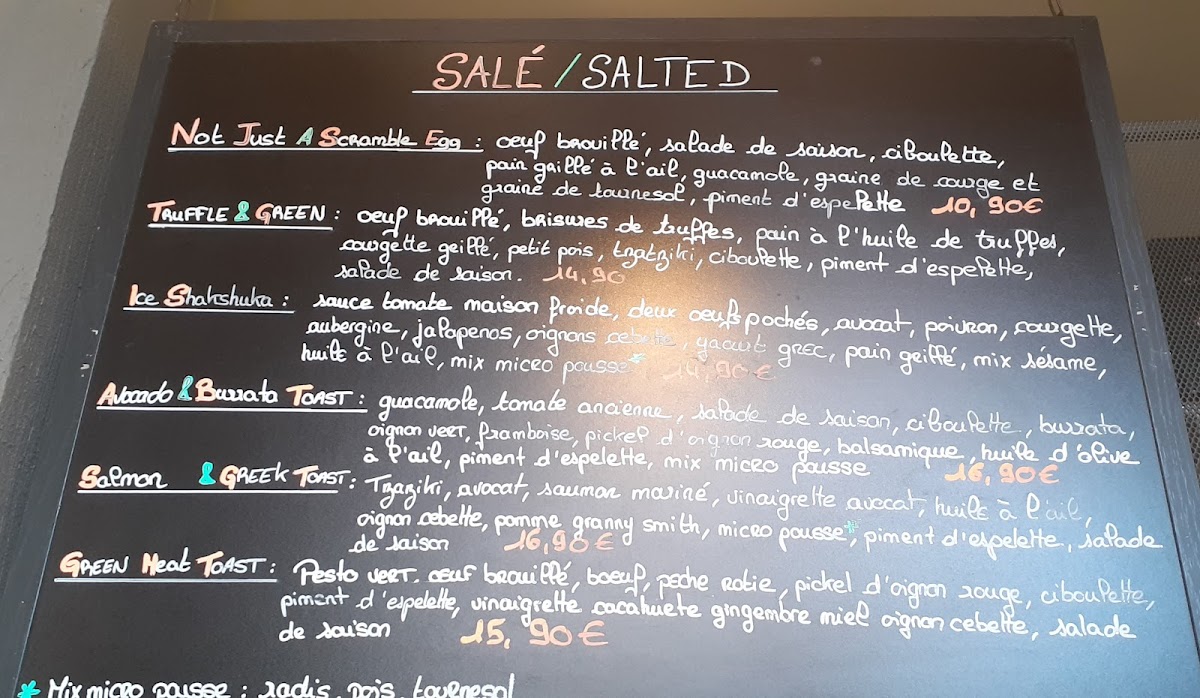 SALÉ / SALTED
NOT JUST A SCRAMBLE EGG : oeuf brouillé, salade de saison, ciboulette,
pain grillé à l'ail, guacamole, graine de courge et
graine de tournesol, piment d'espelette 10,90€
TRUFFLE & GREEN : oeuf brouillé, brisures de truffes, pain à l'huile de truffes,
courgette grillé, petit pois, tzatziki, ciboulette, piment d'espelette,
salade de saison. 14,90
Ice Shakshuka : sauce tomate maison froide, deux oeufs pochés, avocat, poivron, courgette,
aubergine, jalapenos, oignons cebette, yaourt grec, pain grillé, mix sésame,
huile à l'ail, mix micro pousse* 14,90€
Avocado & Burrata TOAST : guacamole, tomate ancienne, salade de saison, ciboulette, burrata,
oignon vert, framboise, pickel d'oignon rouge, balsamique, huile d'olive
à l'ail, piment d'espelette, mix micro pousse 16,90€
Salmon & GREEK TOAST : Tzaziki, avocat, saumon mariné, vinaigrette avocat, huile à l'ail,
oignon cebette, pomme granny smith, micro pousse*, piment d'espelette, salade
de saison 16,90€
GREEN Meat TOAST : Pesto vert, oeuf brouillé, boeuf, peche rotie, pickel d'oignon rouge, ciboulette,
piment d'espelette, vinaigrette cacahuete gingembre miel oignon cebette, salade
de saison 15,90€
* Mix micro pousse : radis, pois, tournesol